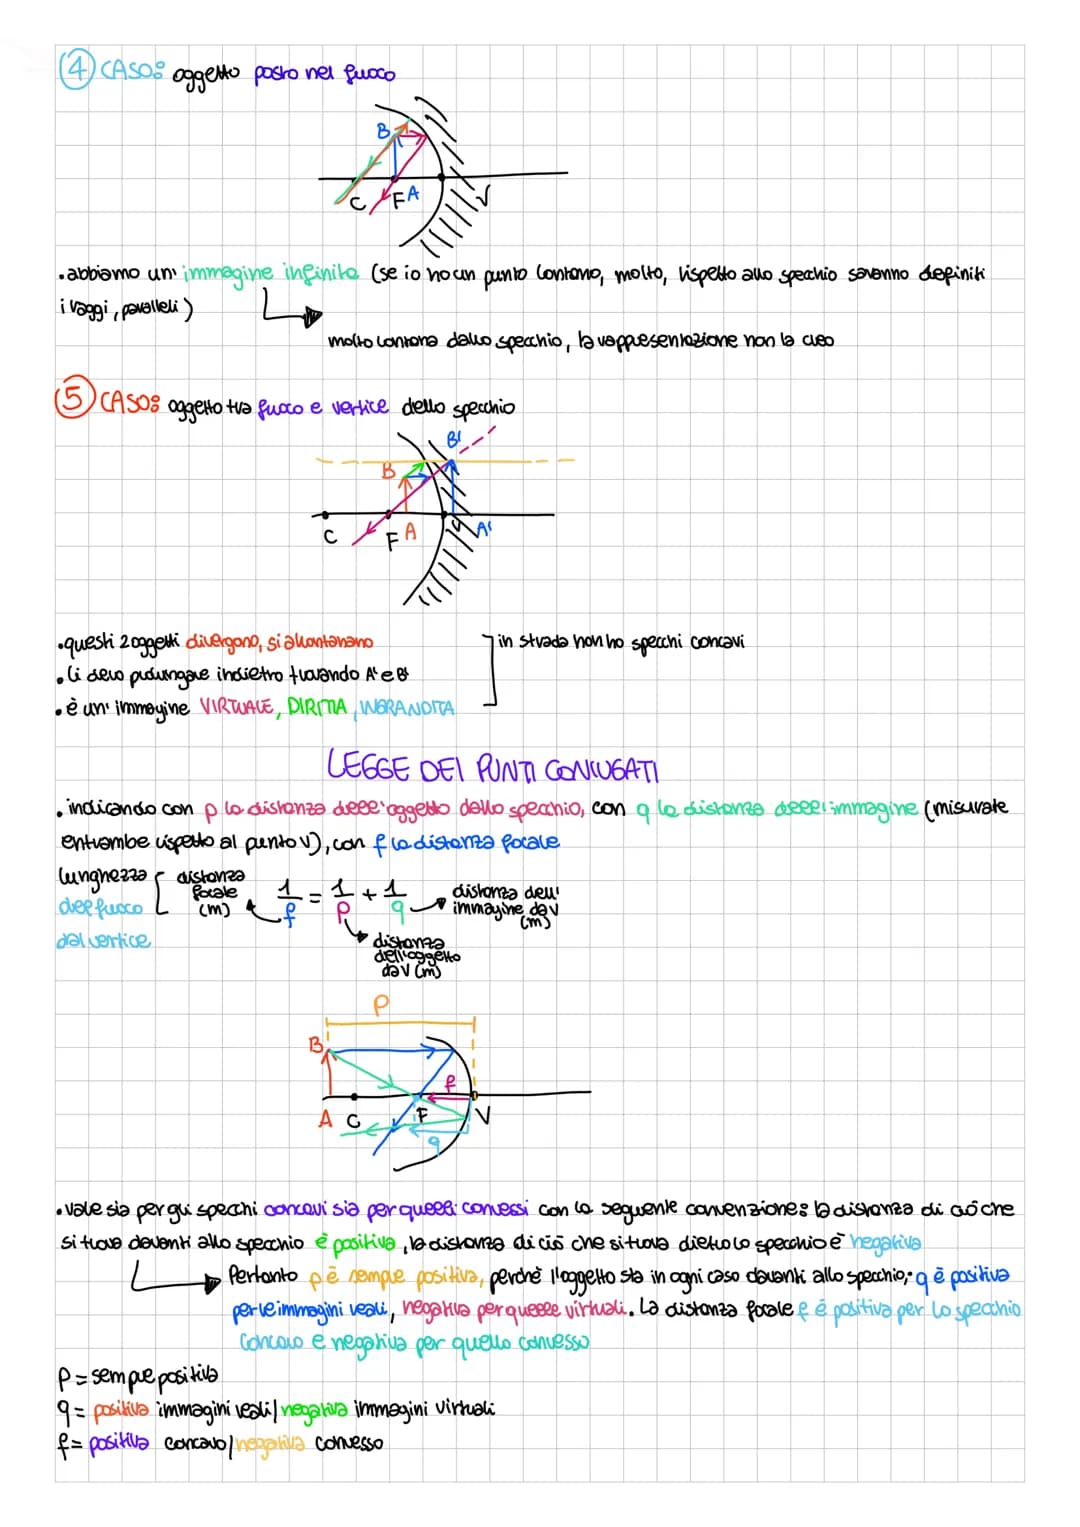 4 CASO: oggetto posto nel fuoco
B
C F A V
• abbiamo un' immagine infinita (se io ho un punto lontano, molto, rispetto allo specchio saranno definiti
i raggi, paralleli)
molto lontana dallo specchio, la rappresentazione non la creo
5 CASO: oggetto tra fuoco e vertice dello specchio
B'
B
C F A V A'
• questi 2 oggetti divergono, si allontanano
in strada non ho specchi concavi
• li devo prolungare indietro trovando A' e B'
• è un' immagine VIRTUALE, DIRITTA, INGRANDITA
LEGGE DEI PUNTI CONIUGATI
• indicando con p la distanza dell'oggetto dallo specchio, con q la distanza dell'immagine (misurate
entrambe rispetto al punto V), con f la distanza focale
lunghezza del fuoco dal vertice
distanza focale (m)
1/f = 1/p + 1/q
distanza dell' immagine da V (m)
distanza dell'oggetto da V (m)
p
B
f
A C F V
q
• vale sia per gli specchi concavi sia per quelli convessi con la seguente convenzione: la distanza di ciò che
si trova davanti allo specchio è positiva, la distanza di ciò che si trova dietro lo specchio è negativa
Pertanto p è sempre positiva, perchè l'oggetto sta in ogni caso davanti allo specchio; q è positiva
per le immagini reali, negativa per quelle virtuali. La distanza focale f è positiva per lo specchio
concavo e negativa per quello convesso
p = sempre positiva
q = positiva immagini reali / negativa immagini virtuali
f = positiva concavo / negativa convesso